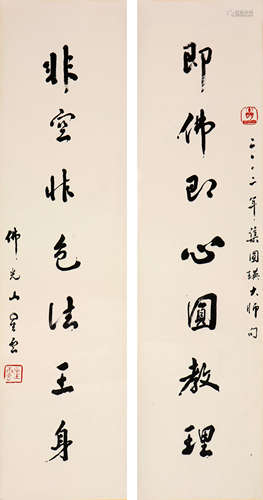 即佛即心圓教理
二〇〇二年集圓瑛大師句
非空非色法王身
佛光山星雲